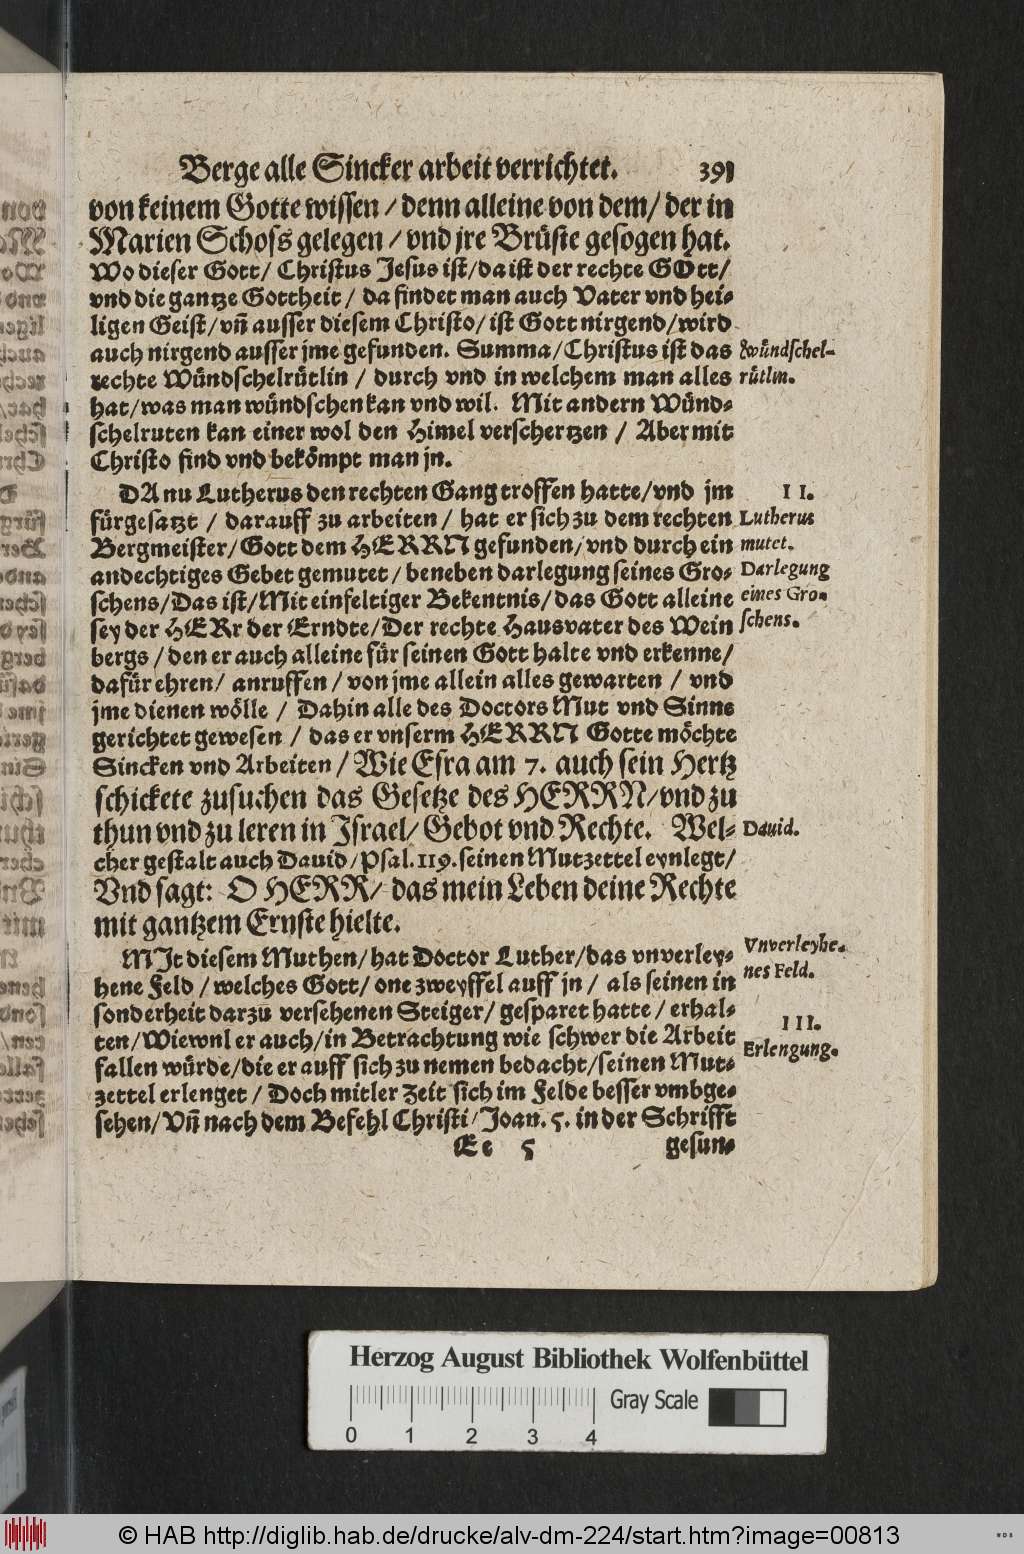 Berge alle Sincker arbeit verrichtet. 391
von keinem Gotte wissen / denn alleine von dem / der in
Marien Schoss gelegen / vnd jre Brüste gesogen hat.
Wo dieser Gott / Christus Jesus ist / da ist der rechte GOtt /
vnd die gantze Gottheit / da findet man auch Vater vnd hei-
ligen Geist / vñ ausser diesem Christo / ist Gott nirgend / wird
auch nirgend ausser jme gefunden. Summa / Christus ist das
rechte Wündschelrütlin / durch vnd in welchem man alles
hat / was man wündschen kan vnd wil. Mit andern Wünd-
schelruten kan einer wol den Himel verschertzen / Aber mit
Christo find vnd bekömpt man jn.
Wündschel-
rütlin.
DA nu Lutherus den rechten Gang troffen hatte / vnd jm
fürgesatzt / darauff zu arbeiten / hat er sich zu dem rechten
Bergmeister / Gott dem HERRN gefunden / vnd durch ein
andechtiges Gebet gemutet / beneben darlegung seines Gro-
schens / Das ist / Mit einfeltiger Bekentnis / das Gott alleine
sey der HERr der Erndte / Der rechte Hausvater des Wein
bergs / den er auch alleine für seinen Gott halte vnd erkenne /
dafür ehren / anruffen / von jme allein alles gewarten / vnd
jme dienen wölle / Dahin alle des Doctors Mut vnd Sinne
gerichtet gewesen / das er vnserm HERRN Gotte möchte
Sincken vnd Arbeiten / Wie Esra am 7. auch sein Hertz
schickete zusuchen das Gesetze des HERRN / vnd zu
thun vnd zu leren in Israel / Gebot vnd Rechte. Wel-
cher gestalt auch Dauid / Psal. 119. seinen Mutzettel eynlegt /
Vnd sagt: O HERR / das mein Leben deine Rechte
mit gantzem Ernste hielte.
II.
Lutherus
mutet.
Darlegung
eines Gro-
schens.
Dauid.
MIt diesem Muthen / hat Doctor Luther / das vnverley-
hene Feld / welches Gott / one zweyffel auff jn / als seinen in
sonderheit darzu versehenen Steiger / gesparet hatte / erhal-
ten / Wiewol er auch / in Betrachtung wie schwer die Arbeit
fallen würde / die er auff sich zu nemen bedacht / seinen Mut-
zettel erlenget / Doch mitler Zeit sich im Felde besser vmbge-
sehen / Vñ nach dem Befehl Christi / Joan. 5. in der Schrifft
Ee 5 gesun-
Vnverleyhe-
nes Feld.
III.
Erlengung.
Herzog August Bibliothek Wolfenbüttel
Gray Scale
0 1 2 3 4
© HAB http://diglib.hab.de/drucke/alv-dm-224/start.htm?image=00813